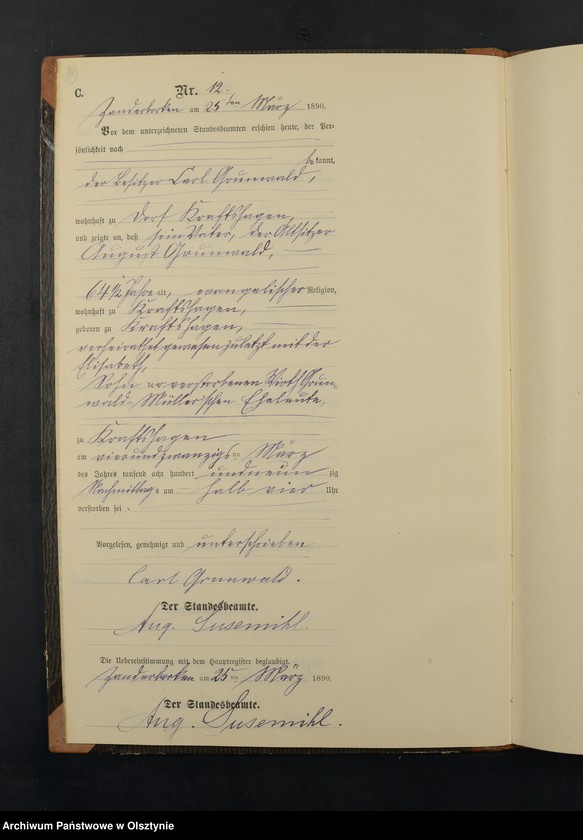 C.
Nr. 12.
am 25ten März 1890.
Vor dem unterzeichneten Standesbeamten erschien heute, der Per-
sönlichkeit nach
be kannt,
der Besitzer Carl Grunwald,
wohnhaft zu Dorf Kraftshagen,
und zeigte an, daß sein Vater, der Altsitzer
August Grunwald,
64 1/2 Jahre alt, evangelischer Religion,
wohnhaft zu Kraftshagen,
geboren zu Kraftshagen,
verheirathet gewesen zuletzt mit der
Elisabeth,
Sohn der verstorbenen Wirth Grun-
wald-Müller'schen Eheleute,
zu Kraftshagen
am vierundzwanzigsten März
des Jahres tausend acht hundert und neun zig
Nachmittags um halb vier Uhr
verstorben sei.
Vorgelesen, genehmigt und unterschrieben
Carl Grunwald.
Der Standesbeamte.
Aug. Susemihl.
Die Uebereinstimmung mit dem Hauptregister beglaubigt.
am 25ten März 1890.
Der Standesbeamte.
Aug. Susemihl.
Archiwum Państwowe w Olsztynie